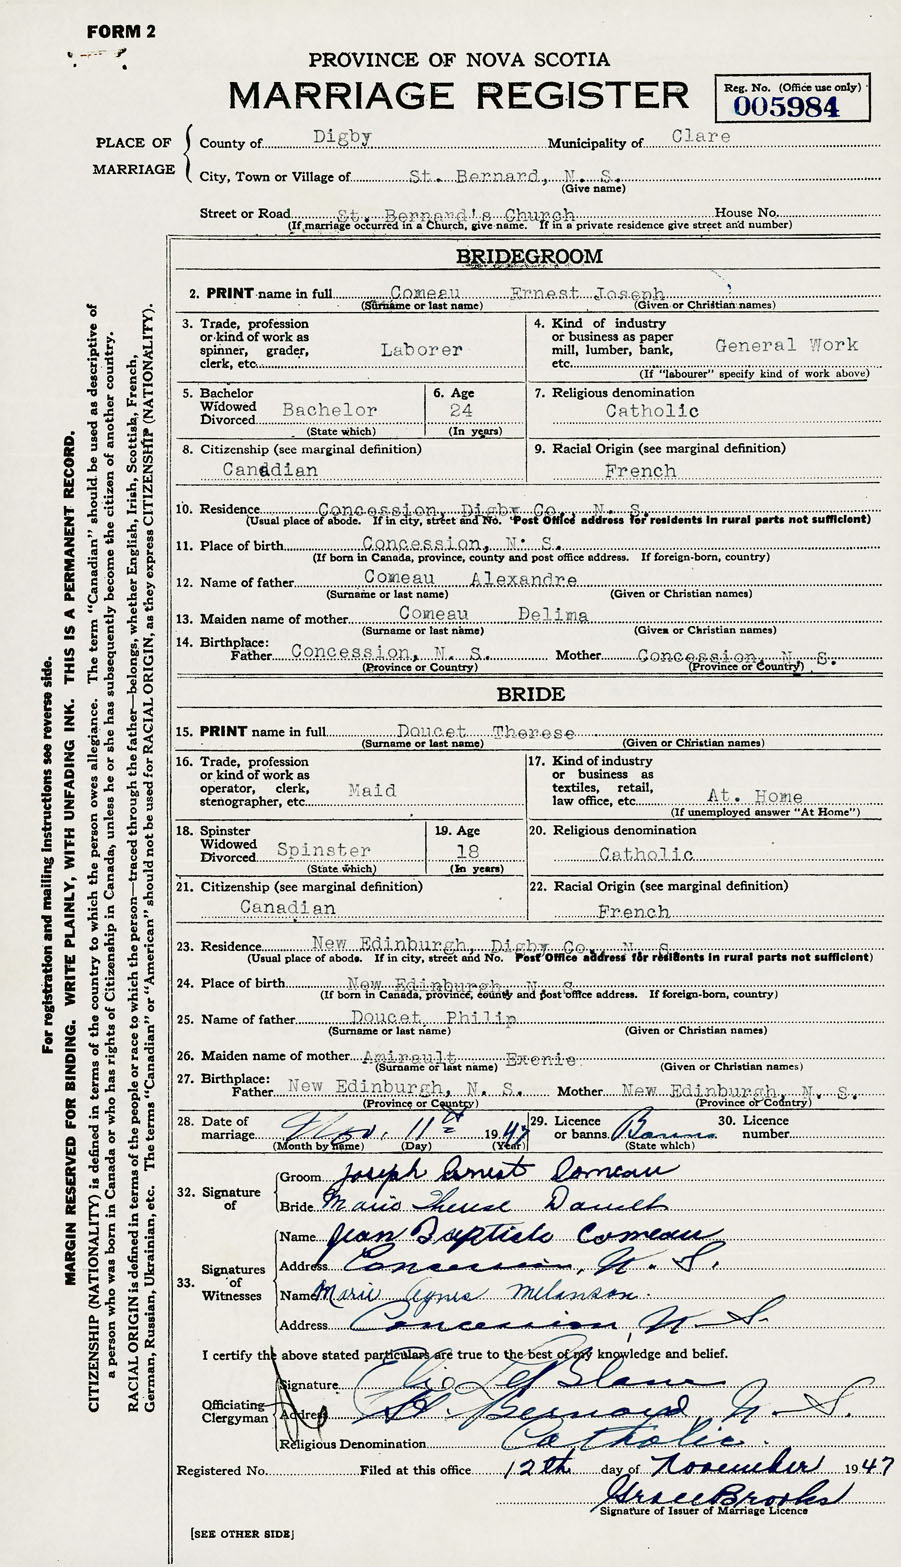 FORM 2
PROVINCE OF NOVA SCOTIA
MARRIAGE REGISTER
Reg. No. (Office use only)
005984
PLACE OF MARRIAGE
County of Digby Municipality of Clare
City, Town or Village of St. Bernard, N. S.
(Give name)
Street or Road St. Bernard's Church House No.
(If marriage occurred in a Church, give name. If in a private residence give street and number)
BRIDEGROOM
2. PRINT name in full Comeau Ernest Joseph
(Surname or last name) (Given or Christian names)
3. Trade, profession or kind of work as spinner, grader, clerk, etc. Laborer
4. Kind of industry or business as paper mill, lumber, bank, etc. General Work
(If "labourer" specify kind of work above)
5. Bachelor Widowed Divorced Bachelor
(State which)
6. Age 24
(In years)
7. Religious denomination
Catholic
8. Citizenship (see marginal definition)
Canadian
9. Racial Origin (see marginal definition)
French
10. Residence Concession, Digby Co., N. S.
(Usual place of abode. If in city, street and No. Post Office address for residents in rural parts not sufficient)
11. Place of birth Concession, N. S.
(If born in Canada, province, county and post office address. If foreign-born, country)
12. Name of father Comeau Alexandre
(Surname or last name) (Given or Christian names)
13. Maiden name of mother Comeau Delima
(Surname or last name) (Given or Christian names)
14. Birthplace:
Father Concession, N. S. Mother Concession, N. S.
(Province or Country) (Province or Country)
BRIDE
15. PRINT name in full Doucet Therese
(Surname or last name) (Given or Christian names)
16. Trade, profession or kind of work as operator, clerk, stenographer, etc. Maid
17. Kind of industry or business as textiles, retail, law office, etc. At. Home
(If unemployed answer "At Home")
18. Spinster Widowed Divorced Spinster
(State which)
19. Age
18
(In years)
20. Religious denomination
Catholic
21. Citizenship (see marginal definition)
Canadian
22. Racial Origin (see marginal definition)
French
23. Residence New Edinburgh, Digby Co., N. S.
(Usual place of abode. If in city, street and No. Post Office address for residents in rural parts not sufficient)
24. Place of birth New Edinburgh, N. S.
(If born in Canada, province, county and post office address. If foreign-born, country)
25. Name of father Doucet Philip
(Surname or last name) (Given or Christian names)
26. Maiden name of mother Amirault Exenie
(Surname or last name) (Given or Christian names)
27. Birthplace:
Father New Edinburgh, N. S. Mother New Edinburgh, N. S.
(Province or Country) (Province or Country)
28. Date of marriage Nov. 11th 1947
(Month by name) (Day) (Year)
29. Licence or banns Banns
(State which)
30. Licence number
32. Signature of
Groom Joseph Ernest Comeau
Bride Marie Therese Doucet
33. Signatures of Witnesses
Name Jean Baptiste Comeau
Address Concession, N. S.
Name Marie Agnes Melanson.
Address Concession, N. S.
I certify the above stated particulars are true to the best of my knowledge and belief.
Officiating Clergyman
Signature LeBlanc
Address St. Bernard, N. S.
Religious Denomination Catholic.
Registered No. Filed at this office 12th day of November 1947
Grace Brooks
Signature of Issuer of Marriage Licence
[SEE OTHER SIDE]
For registration and mailing instructions see reverse side.
MARGIN RESERVED FOR BINDING. WRITE PLAINLY, WITH UNFADING INK. THIS IS A PERMANENT RECORD.
CITIZENSHIP (NATIONALITY) is defined in terms of the country to which the person owes allegiance. The term "Canadian" should be used as descriptive of
a person who was born in Canada or who has rights of Citizenship in Canada, unless he or she has subsequently become the citizen of another country.
RACIAL ORIGIN is defined in terms of the people or race to which the person—traced through the father—belongs, whether English, Irish, Scottish, French,
German, Russian, Ukrainian, etc. The terms "Canadian" or "American" should not be used for RACIAL ORIGIN, as they express CITIZENSHIP (NATIONALITY).